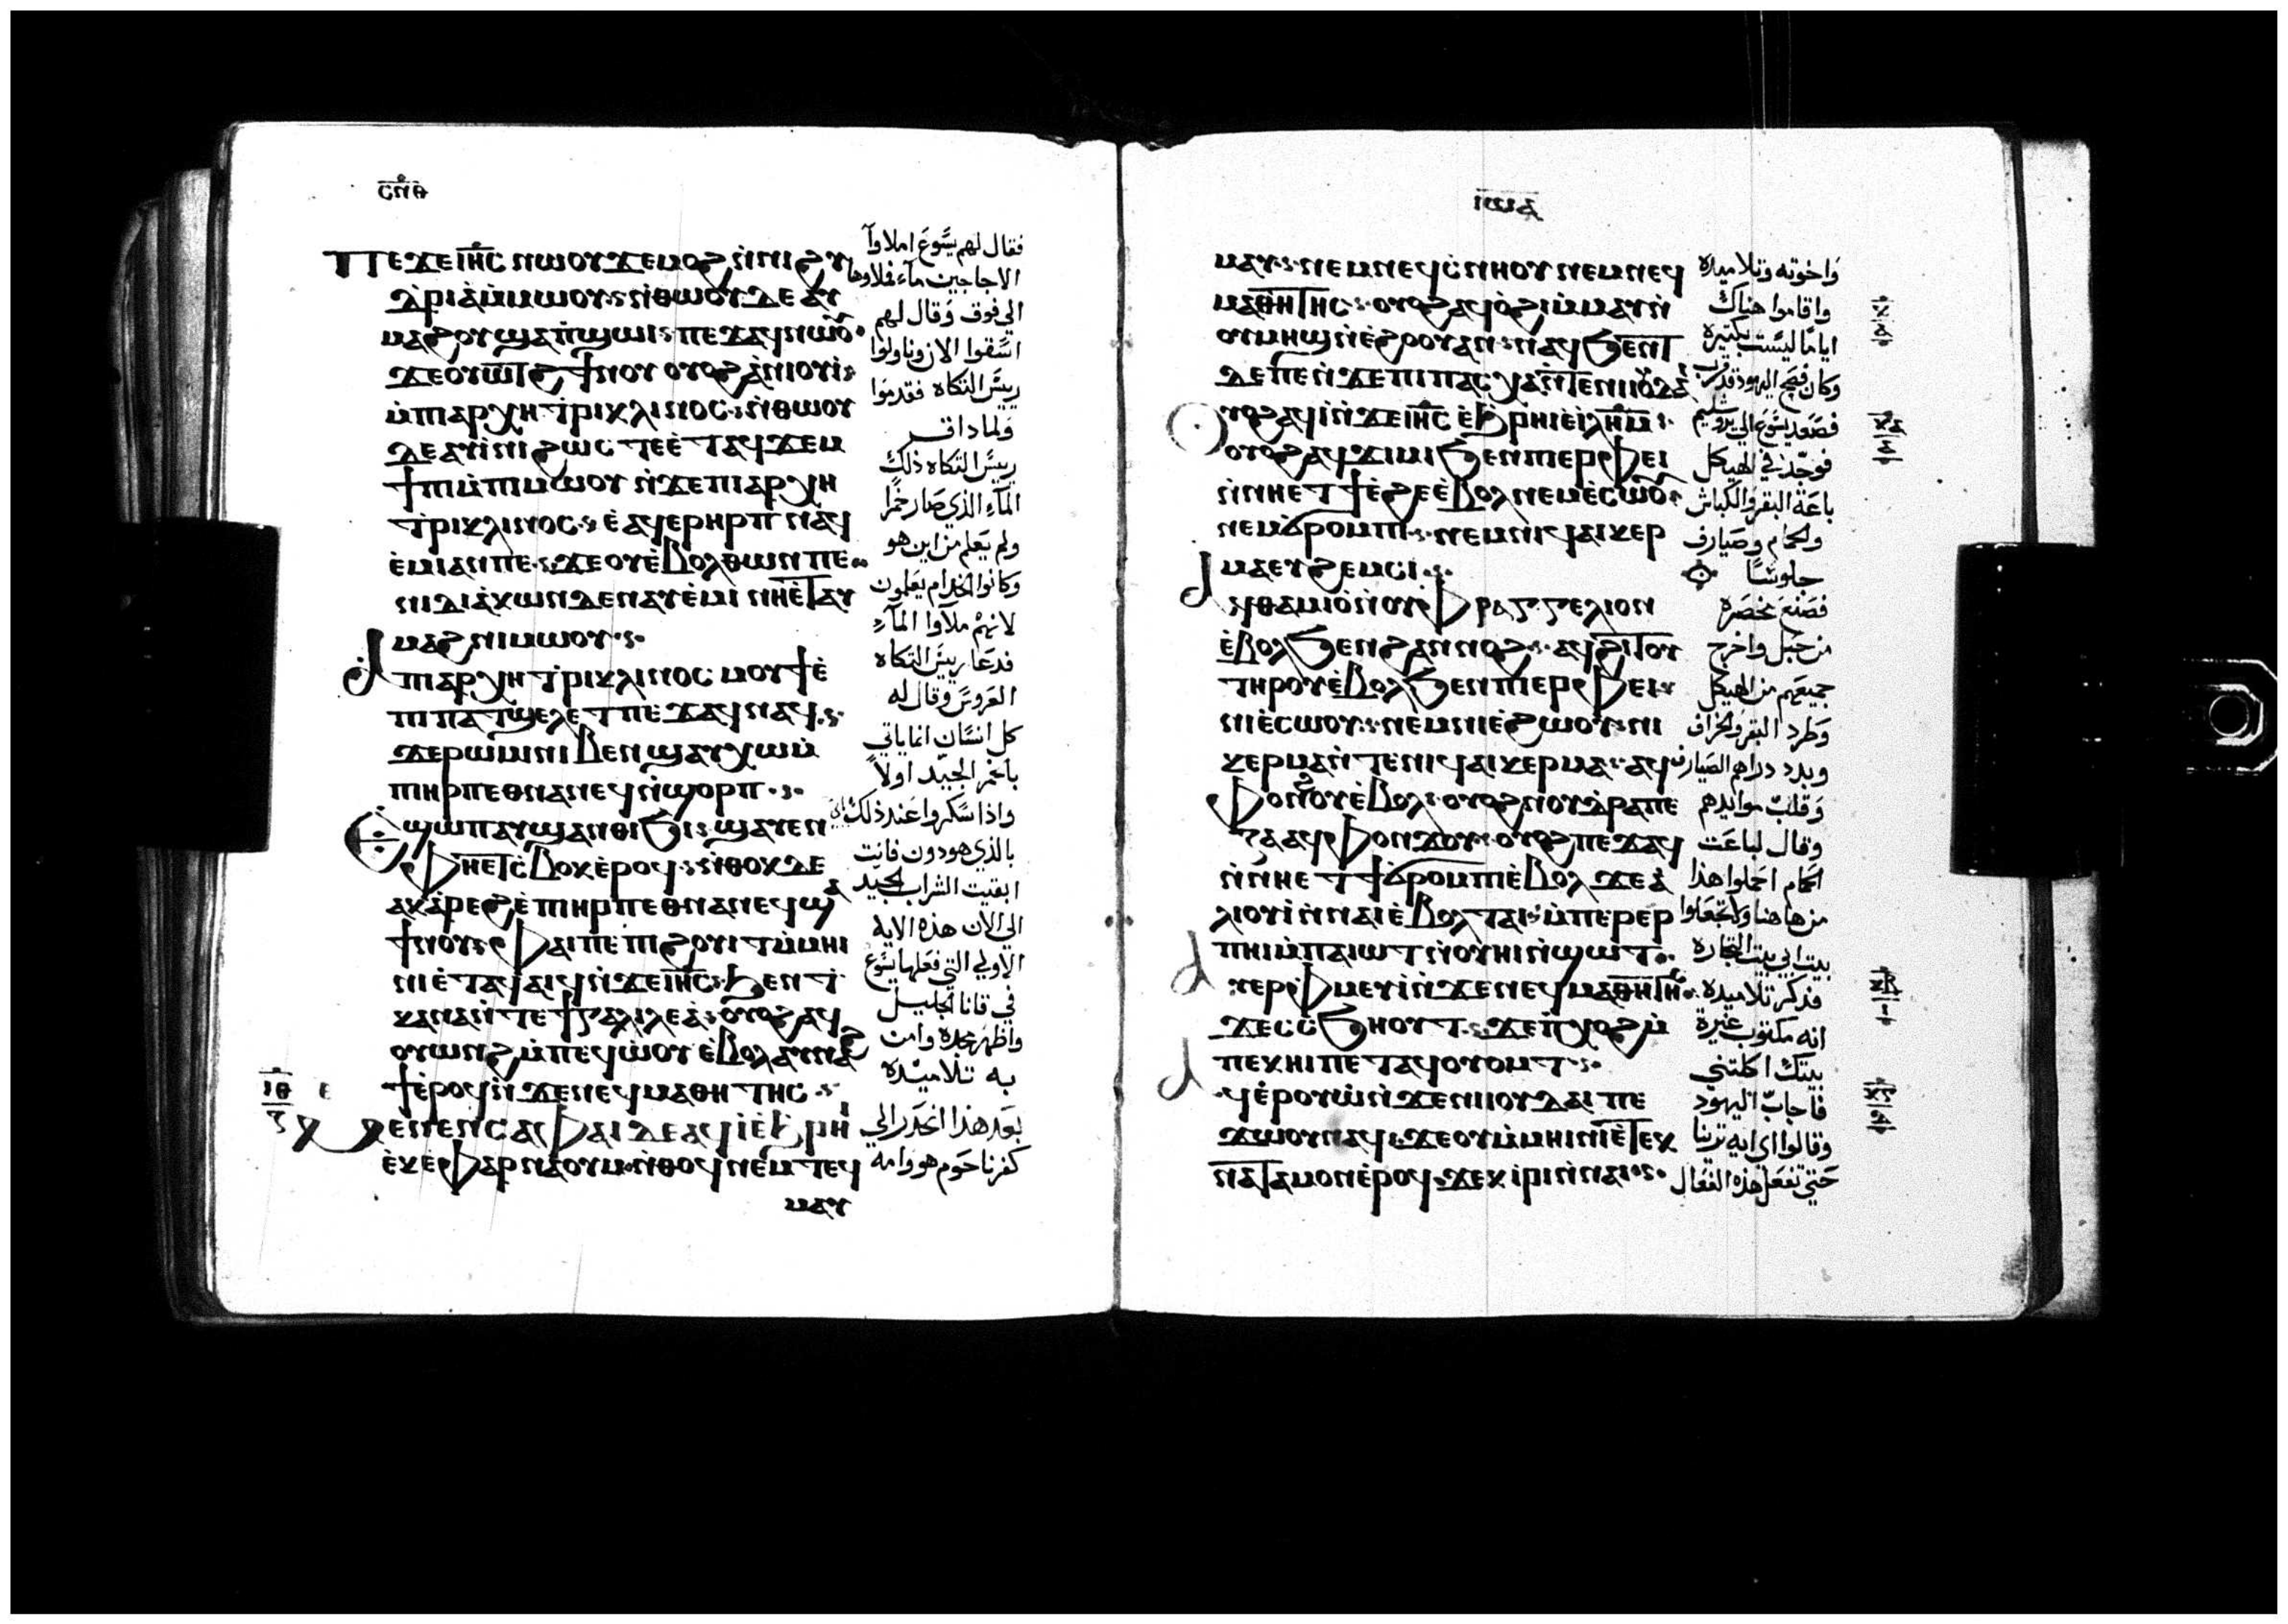 ⲥⲡⲑ
ⲡⲉϫⲉ ⲓⲏⲥ ⲛⲱⲟⲩ ϫⲉ ⲙⲟϩ ⲛⲛⲓϩⲩ
ⲇⲣⲓⲁ ⲙⲙⲱⲟⲩ ⲛⲑⲱⲟⲩ ⲇⲉ ⲁⲩ
ⲙⲁϩⲟⲩ ϣⲁ ⲡϣⲱⲓ ⲡⲉϫⲁϥ ⲛⲱⲟⲩ
ϫⲉ ⲟⲩⲱⲧϩ ϯⲛⲟⲩ ⲟⲩⲟϩ ⲁⲛⲓⲟⲩⲓ
ⲙⲡⲓⲁⲣⲭⲏⲧⲣⲓⲕⲗⲓⲛⲟⲥ ⲛⲑⲱⲟⲩ
ⲇⲉ ⲁⲩⲓⲛⲓ ϩⲱⲥ ⲇⲉ ⲉⲧⲁϥϫⲉⲙ
ϯⲡⲓ ⲙⲡⲓⲙⲱⲟⲩ ⲛϫⲉ ⲡⲓⲁⲣⲭⲏ
ⲧⲣⲓⲕⲗⲓⲛⲟⲥ ⲉⲁϥⲉⲣⲏⲣⲡ ⲛⲁϥ
ⲉⲙⲓ ⲁⲛ ⲡⲉ ϫⲉ ⲟⲩⲉⲃⲟⲗ ⲑⲱⲛ ⲡⲉ
ⲛⲓⲇⲓⲁⲕⲱⲛ ⲇⲉ ⲛⲁⲩⲉⲙⲓ ⲛⲏⲉⲧⲁⲩ
ⲙⲁϩ ⲛⲓⲙⲱⲟⲩ
ⲡⲓⲁⲣⲭⲏⲧⲣⲓⲕⲗⲓⲛⲟⲥ ⲙⲟⲩϯ ⲉ
ⲡⲓⲡⲁⲧϣⲉⲗⲉⲧ ⲡⲉϫⲁϥ ⲛⲁϥ
ϫⲉ ⲣⲱⲙⲓ ⲛⲓⲃⲉⲛ ϣⲁⲩⲭⲱ ⲙ
ⲡⲓⲏⲣⲡ ⲉⲑⲛⲁⲛⲉϥ ⲛϣⲟⲣⲡ
ⲉϣⲱⲡ ⲁⲩϣⲁⲛⲑⲓϧⲓ ϣⲁⲩⲉⲛ
ⲫⲏⲉⲧϭⲃⲟⲕ ⲉⲣⲟϥ ⲛⲑⲟⲕ ⲇⲉ
ⲁⲕⲁⲣⲉϩ ⲉⲡⲓⲏⲣⲡ ⲉⲑⲛⲁⲛⲉϥ ϣⲁ
ϯⲛⲟⲩ ⲫⲁⲓ ⲡⲉ ⲡⲓϩⲟⲩⲓⲧ ⲙⲙⲏⲓ
ⲛⲓ ⲉⲧⲁϥⲁⲓϥ ⲛϫⲉ ⲓⲏⲥ ϧⲉⲛ ⲧ
ⲕⲁⲛⲁ ⲛⲧⲉ ϯⲅⲁⲗⲓⲗⲉⲁ ⲟⲩⲟϩ ⲁϥ
ⲟⲩⲱⲛϩ ⲙⲡⲉϥⲱⲟⲩ ⲉⲃⲟⲗ ⲁⲩⲛⲁϩ
ϯ ⲉⲣⲟϥ ⲛϫⲉ ⲛⲉϥⲙⲁⲑⲏⲧⲏⲥ
ⲓⲑ
ⲍ
ⲉ
ⲙⲉⲛⲉⲛⲥⲁ ⲫⲁⲓ ⲇⲉ ⲁϥⲓ ⲉϧⲣⲏⲓ
ⲉⲕⲉⲫⲁⲣⲛⲁⲟⲩⲙ ⲛⲑⲟϥ ⲛⲉⲙ ⲧⲉϥ
ⲙⲁⲩ
فقال لهم يسوع املاوا
الاجاجين مآء فملاوها
الي فوق وقال لهم
استقوا الان وناولوا
رييس التكاه فقدموا
ولما داق
رييس التكاه ذلك
المآء الذي صار خمرا
ولم يعلم من اين هو
وكانوا الخدام يعلمون
لانهم ملآوا المآء
فدعا رييس التكاه
العروس وقال له
كل انسان انما ياتي
بالخمر الجيد اولا
واذا سكروا عند ذلك
بالذي هو دون فانت
ابقيت الشراب الجيد
الي الان هذه الايه
الاولي التي فعلها يسوع
في قانا الجليل
واظهر مجده وامن
به تلاميده
بعد هذا انحدر الي
كفرناحوم هو وامه
ⲓⲱⲁ
ⲙⲁⲩ ⲛⲉⲙ ⲛⲉϥⲥⲛⲏⲟⲩ ⲛⲉⲙ ⲛⲉϥ
ⲙⲁⲑⲏⲧⲏⲥ ⲟⲩⲟϩ ⲁϥⲟϩⲓ ⲙⲙⲁⲩ ⲛ
ⲟⲩⲙⲏϣ ⲛⲉϩⲟⲟⲩ ⲁⲛ ⲛⲁϥϧⲉⲛⲧ
ⲇⲉ ⲡⲉ ⲛϫⲉ ⲡⲓⲡⲁⲥⲭⲁ ⲛⲧⲉ ⲛⲓⲓⲟⲩⲇⲁⲓ
ⲟⲩⲟϩ ⲁϥⲓ ⲛϫⲉ ⲓⲏⲥ ⲉϧⲣⲏⲓ ⲉⲓⲗⲏⲙ
ⲟⲩⲟϩ ⲁϥϫⲓⲙⲓ ϧⲉⲛ ⲡⲓⲉⲣⲫⲉⲓ
ⲛⲛⲏⲉⲧϯ ⲉϩⲉ ⲉⲃⲟⲗ ⲛⲉⲙ ⲉⲥⲱⲟⲩ
ⲛⲉⲙ ϭⲣⲟⲙⲡⲓ ⲛⲉⲙ ⲛⲓϥⲁⲓⲕⲉⲣ
ⲙⲁ ⲉⲩϩⲉⲙⲥⲓ
ⲁϥⲑⲁⲙⲓⲟ ⲛⲟⲩⲫⲣⲁⲅⲅⲉⲗⲓⲟⲛ
ⲉⲃⲟⲗ ϧⲉⲛ ϩⲁⲛⲛⲟϩ ⲁϥϩⲓⲧⲟⲩ
ⲧⲏⲣⲟⲩ ⲉⲃⲟⲗ ϧⲉⲛ ⲡⲓⲉⲣⲫⲉⲓ
ⲛⲓⲉⲥⲱⲟⲩ ⲛⲉⲙ ⲛⲓⲉϩⲱⲟⲩ ⲛⲓ
ⲕⲉⲣⲙⲁ ⲛⲧⲉ ⲛⲓϥⲁⲓⲕⲉⲣⲙⲁ ⲁϥ
ⲫⲟⲛⲟⲩ ⲉⲃⲟⲗ ⲟⲩⲟϩ ⲛⲟⲩⲧⲣⲁⲡⲉ
ⲍⲁ ⲁϥⲫⲟⲛϫⲟⲩ ⲟⲩⲟϩ ⲡⲉϫⲁϥ
ⲛⲛⲏⲉⲧϯ ϭⲣⲟⲙⲡⲓ ⲉⲃⲟⲗ ϫⲉ ⲁ
ⲗⲓⲟⲩⲓ ⲛⲛⲁⲓ ⲉⲃⲟⲗ ⲧⲁⲓ ⲙⲡⲉⲣⲉⲣ
ⲡⲏⲓ ⲙⲡⲁⲓⲱⲧ ⲛⲟⲩⲏⲓ ⲛϣⲱⲧ
ⲁⲩⲉⲣⲫⲙⲉⲩⲓ ⲛϫⲉ ⲛⲉϥⲙⲁⲑⲏⲧⲏⲥ
ϫⲉ ⲥⲥϧⲏⲟⲩⲧ ϫⲉ ⲡⲭⲟϩ ⲙ
ⲡⲉⲕⲏⲓ ⲡⲉⲧⲁϥⲟⲩⲟⲙⲧ
ⲁⲩⲉⲣⲟⲩⲱ ⲛϫⲉ ⲛⲓⲓⲟⲩⲇⲁⲓ ⲡⲉ
ϫⲱⲟⲩ ⲛⲁϥ ϫⲉ ⲟⲩ ⲙⲙⲏⲓⲛⲓ ⲉⲧⲉⲕ
ⲛⲁⲧⲁⲙⲟⲛ ⲉⲣⲟϥ ϫⲉ ⲕⲓⲣⲓ ⲛⲛⲁⲓ
واخوته وتلاميده
واقاموا هناك
اياما ليست بكتيره
وكان فصح اليهود قد قرب
فصعد يسوع الي يروشليم
فوجد في الهيكل
باعة البقر والكباش
والحمام وصيارف
جلوسا
فصنع مخصره
من حبل واخرج
جميعهم من الهيكل
وطرد البقر والخراف
وبدد دراهم الصيارف
وقلب موايدهم
وقال لباعت
الحمام احملوا هذا
من هاهنا ولا تجعلوا
بيت ابي بيت التجاره
فذكر تلاميده
انه مكتوب غيرة
بيتك اكلتني
فاجاب اليهود
وقالوا اي ايه ترينا
حتي تفعل هذه الفعال